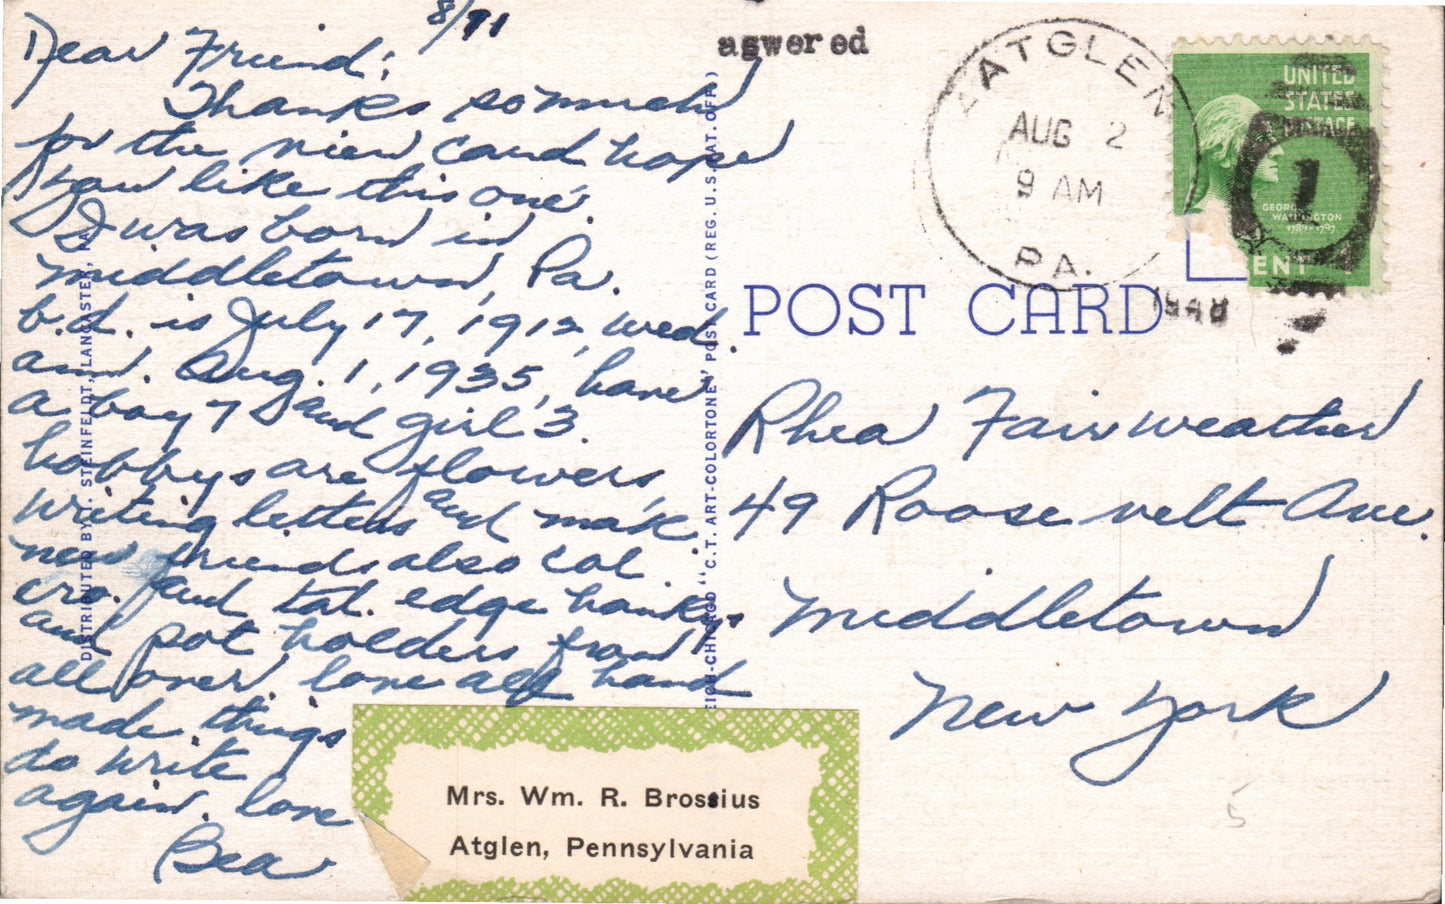 8/11
agwered
Dear Friend;
Thanks so much
for the view card hope
you like this one.
I was born in
Middletown, Pa.
b.d. is July 17, 1912, wed.
ann. Aug. 1, 1935, have
a boy 7 and girl 3.
hobbys are flowers,
writing letters and mak.
new friends also col.
cro. and tat. edge hankys
and pot holders from
all over. love all hand
made things
do write
again. love
Bea
Mrs. Wm. R. Brossius
Atglen, Pennsylvania
DISTRIBUTED BY I. STEINFELDT, LANCASTER,
"C.T. ART-COLORTONE" POST CARD (REG. U.S. PAT. OFF.)
ATGLEN
AUG 2
9 AM
PA.
1948
UNITED
STATES
POSTAGE
1
GEORGE
WASHINGTON
1789-1797
CENT
POST CARD
Rhea Fairweather
49 Roosevelt Ave.
Middletown
New York
5